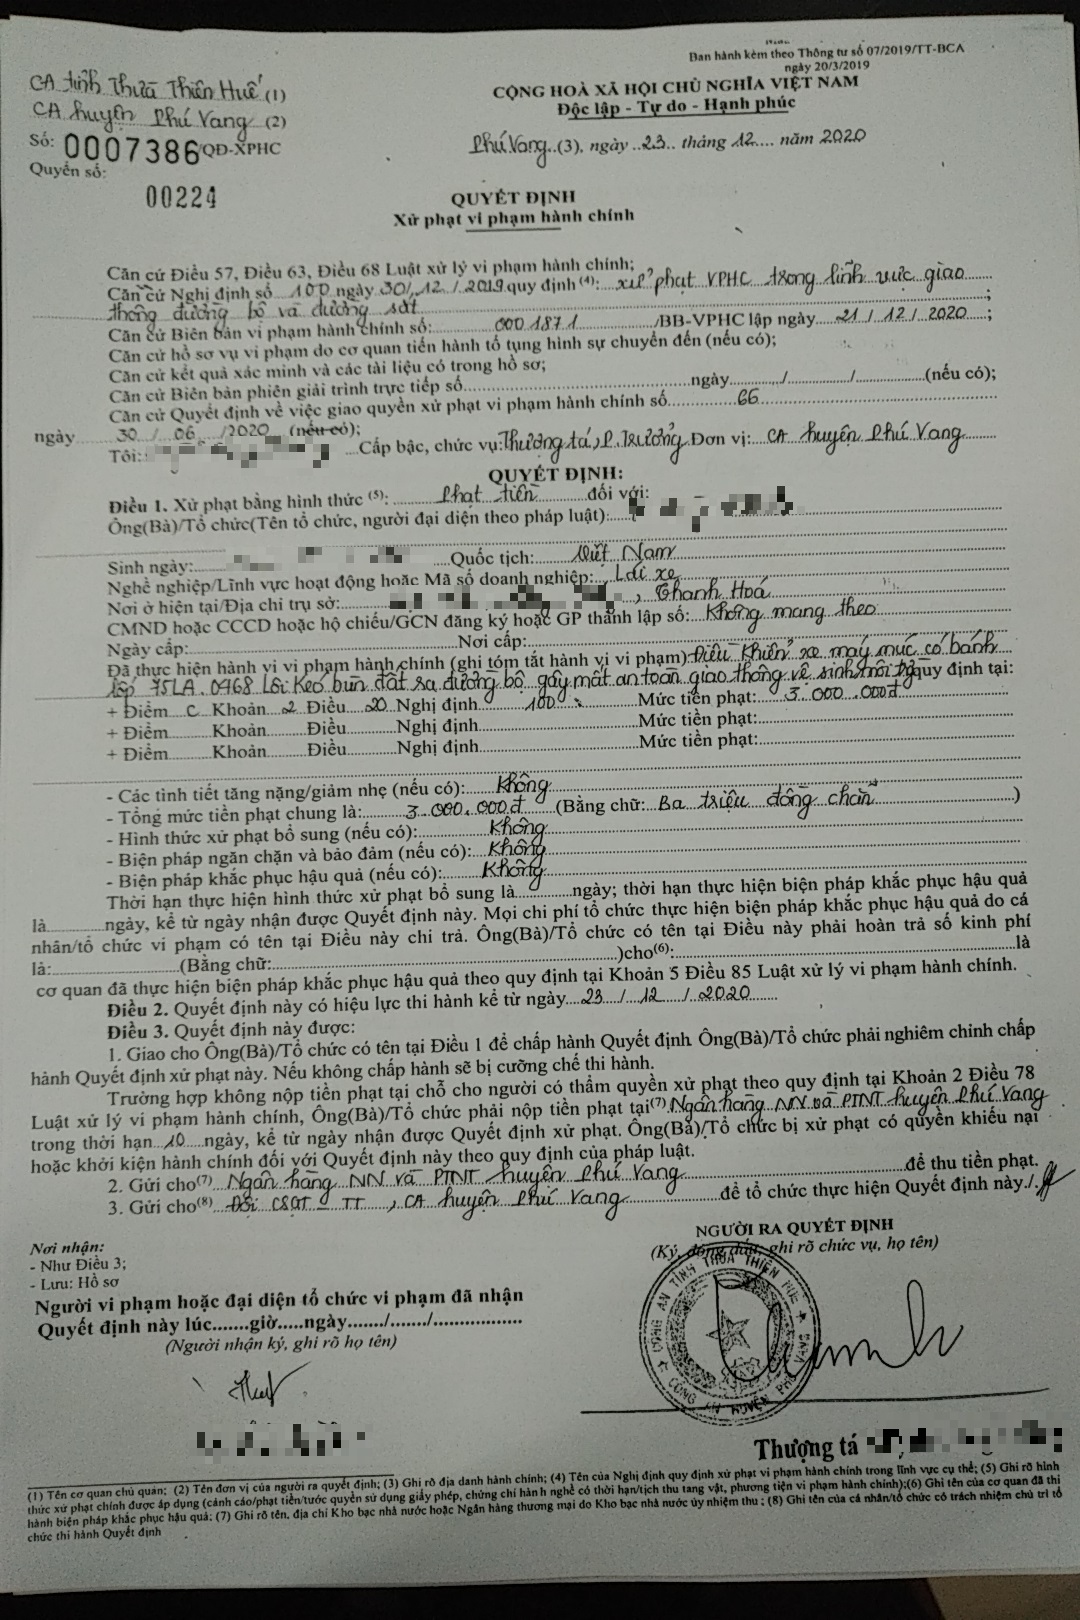 Ban hành kèm theo Thông tư số 07/2019/TT-BCA
ngày 20/3/2019
CA tỉnh Thừa Thiên Huế (1)
CA huyện Phú Vang (2)
Số: 0007386/QĐ-XPHC
Quyển số:
00224
CỘNG HOÀ XÃ HỘI CHỦ NGHĨA VIỆT NAM
Độc lập - Tự do - Hạnh phúc
Phú Vang..(3), ngày ..23.. tháng .12.... năm 2020
QUYẾT ĐỊNH
Xử phạt vi phạm hành chính
Căn cứ Điều 57, Điều 63, Điều 68 Luật xử lý vi phạm hành chính;
Căn cứ Nghị định số 100 ngày 30/.12./2019 quy định (4): xử phạt VPHC trong lĩnh vực giao
thông đường bộ và đường sắt ;
Căn cứ Biên bản vi phạm hành chính số: 0001871 /BB-VPHC lập ngày 21/12/2020 ;
Căn cứ hồ sơ vụ vi phạm do cơ quan tiến hành tố tụng hình sự chuyển đến (nếu có);
Căn cứ kết quả xác minh và các tài liệu có trong hồ sơ;
Căn cứ Biên bản phiên giải trình trực tiếp số.......... ngày......./......./......... (nếu có);
Căn cứ Quyết định về việc giao quyền xử phạt vi phạm hành chính số.......66
ngày 30/ 06 /2020 (nếu có);
Tôi: Cấp bậc, chức vụ: Thượng tá, P.Trưởng Đơn vị: CA huyện Phú Vang
QUYẾT ĐỊNH:
Điều 1. Xử phạt bằng hình thức (5): Phạt tiền đối với:
Ông(Bà)/Tổ chức(Tên tổ chức, người đại diện theo pháp luật):
Sinh ngày: Quốc tịch: Việt Nam
Nghề nghiệp/Lĩnh vực hoạt động hoặc Mã số doanh nghiệp: Lái xe
Nơi ở hiện tại/Địa chỉ trụ sở: , Thanh Hoá
CMND hoặc CCCD hoặc hộ chiếu/GCN đăng ký hoặc GP thành lập số: Không mang theo
Ngày cấp: Nơi cấp:
Đã thực hiện hành vi vi phạm hành chính (ghi tóm tắt hành vi vi phạm): Điều khiển xe máy múc có bánh
lốp 75LA.0768 Lôi kéo bùn đất ra đường bộ gây mất an toàn giao thông vệ sinh môi trg quy định tại:
+ Điểm c Khoản 2 Điều 20 Nghị định 100 Mức tiền phạt: 3.000.000đ
+ Điểm Khoản Điều Nghị định Mức tiền phạt:
+ Điểm Khoản Điều Nghị định Mức tiền phạt:
- Các tình tiết tăng nặng/giảm nhẹ (nếu có): Không
- Tổng mức tiền phạt chung là: 3.000.000đ (Bằng chữ: Ba triệu đồng chẵn )
- Hình thức xử phạt bổ sung (nếu có): Không
- Biện pháp ngăn chặn và bảo đảm (nếu có): Không
- Biện pháp khắc phục hậu quả (nếu có): Không
Thời hạn thực hiện hình thức xử phạt bổ sung là..........ngày; thời hạn thực hiện biện pháp khắc phục hậu quả
là..........ngày, kể từ ngày nhận được Quyết định này. Mọi chi phí tổ chức thực hiện biện pháp khắc phục hậu quả do cá
nhân/tổ chức vi phạm có tên tại Điều này chi trả. Ông(Bà)/Tổ chức có tên tại Điều này phải hoàn trả số kinh phí
là:..........(Bằng chữ:..........)cho(6):..........là
cơ quan đã thực hiện biện pháp khắc phục hậu quả theo quy định tại Khoản 5 Điều 85 Luật xử lý vi phạm hành chính.
Điều 2. Quyết định này có hiệu lực thi hành kể từ ngày 23/12/2020
Điều 3. Quyết định này được:
1. Giao cho Ông(Bà)/Tổ chức có tên tại Điều 1 để chấp hành Quyết định Ông(Bà)/Tổ chức phải nghiêm chỉnh chấp
hành Quyết định xử phạt này. Nếu không chấp hành sẽ bị cưỡng chế thi hành.
Trường hợp không nộp tiền phạt tại chỗ cho người có thẩm quyền xử phạt theo quy định tại Khoản 2 Điều 78
Luật xử lý vi phạm hành chính, Ông(Bà)/Tổ chức phải nộp tiền phạt tại(7) Ngân hàng NN và PTNT huyện Phú Vang
trong thời hạn 10 ngày, kể từ ngày nhận được Quyết định xử phạt. Ông(Bà)/Tổ chức bị xử phạt có quyền khiếu nại
hoặc khởi kiện hành chính đối với Quyết định này theo quy định của pháp luật.
2. Gửi cho(7) Ngân hàng NN và PTNT huyện Phú Vang để thu tiền phạt.
3. Gửi cho(8) Đội CSGT - TT , CA huyện Phú Vang để tổ chức thực hiện Quyết định này./.
Nơi nhận:
- Như Điều 3;
- Lưu: Hồ sơ
Người vi phạm hoặc đại diện tổ chức vi phạm đã nhận
Quyết định này lúc.......giờ.....ngày......./......./..................
(Người nhận ký, ghi rõ họ tên)
NGƯỜI RA QUYẾT ĐỊNH
(Ký, đóng dấu, ghi rõ chức vụ, họ tên)
CÔNG AN TỈNH THỪA THIÊN HUẾ
CÔNG AN HUYỆN PHÚ VANG
Thượng tá
(1) Tên cơ quan chủ quản; (2) Tên đơn vị của người ra quyết định; (3) Ghi rõ địa danh hành chính; (4) Tên của Nghị định quy định xử phạt vi phạm hành chính trong lĩnh vực cụ thể; (5) Ghi rõ hình
thức xử phạt chính được áp dụng (cảnh cáo/phạt tiền/tước quyền sử dụng giấy phép, chứng chỉ hành nghề có thời hạn/tịch thu tang vật, phương tiện vi phạm hành chính);(6) Ghi tên của cơ quan đã thi
hành biện pháp khắc phục hậu quả; (7) Ghi rõ tên, địa chỉ Kho bạc nhà nước hoặc Ngân hàng thương mại do Kho bạc nhà nước ủy nhiệm thu ; (8) Ghi tên của cá nhân/tổ chức có trách nhiệm chủ trì tổ
chức thi hành Quyết định